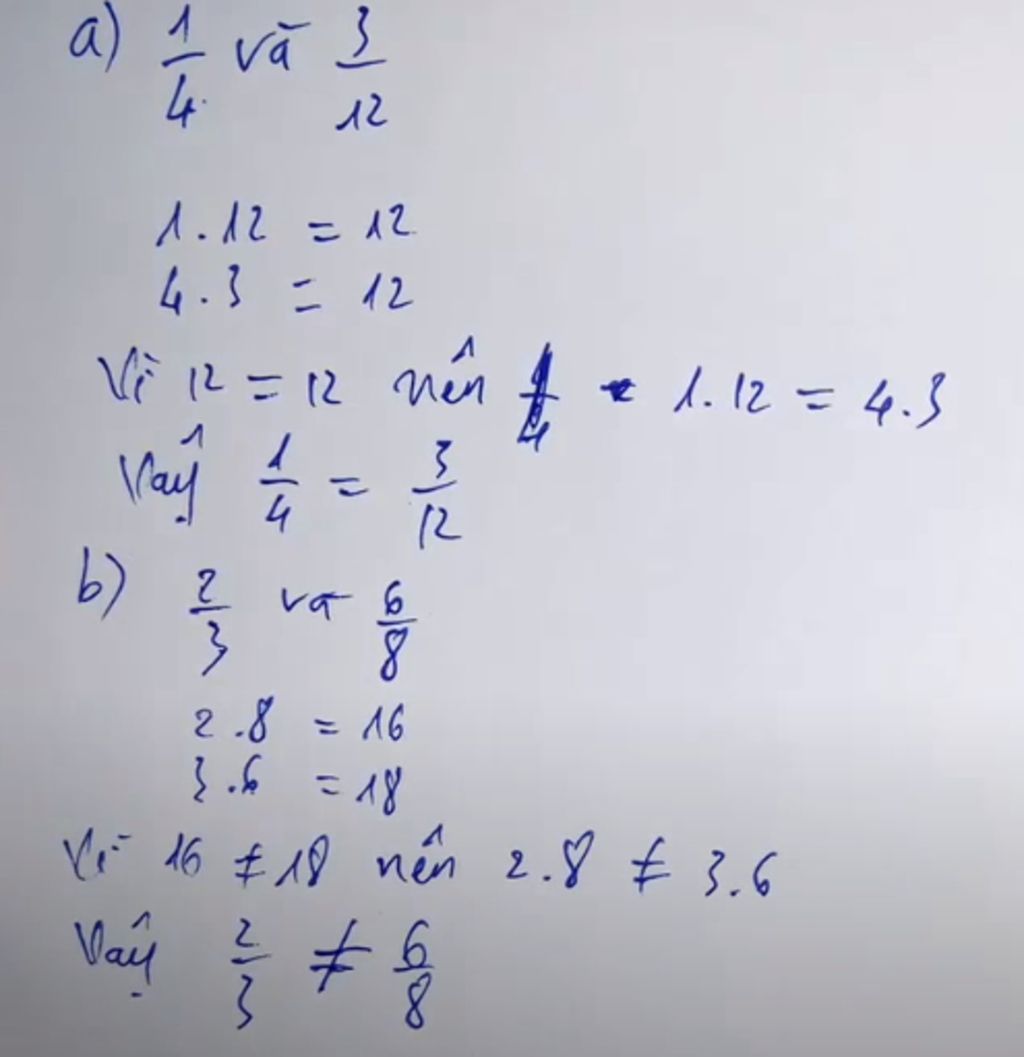 a) 1/4 và 3/12
1.12 = 12
4.3 = 12
Vì 12 = 12 nên 1.12 = 4.3
Vậy 1/4 = 3/12
b) 2/3 và 6/8
2.8 = 16
3.6 = 18
Vì 16 ≠ 18 nên 2.8 ≠ 3.6
Vậy 2/3 ≠ 6/8